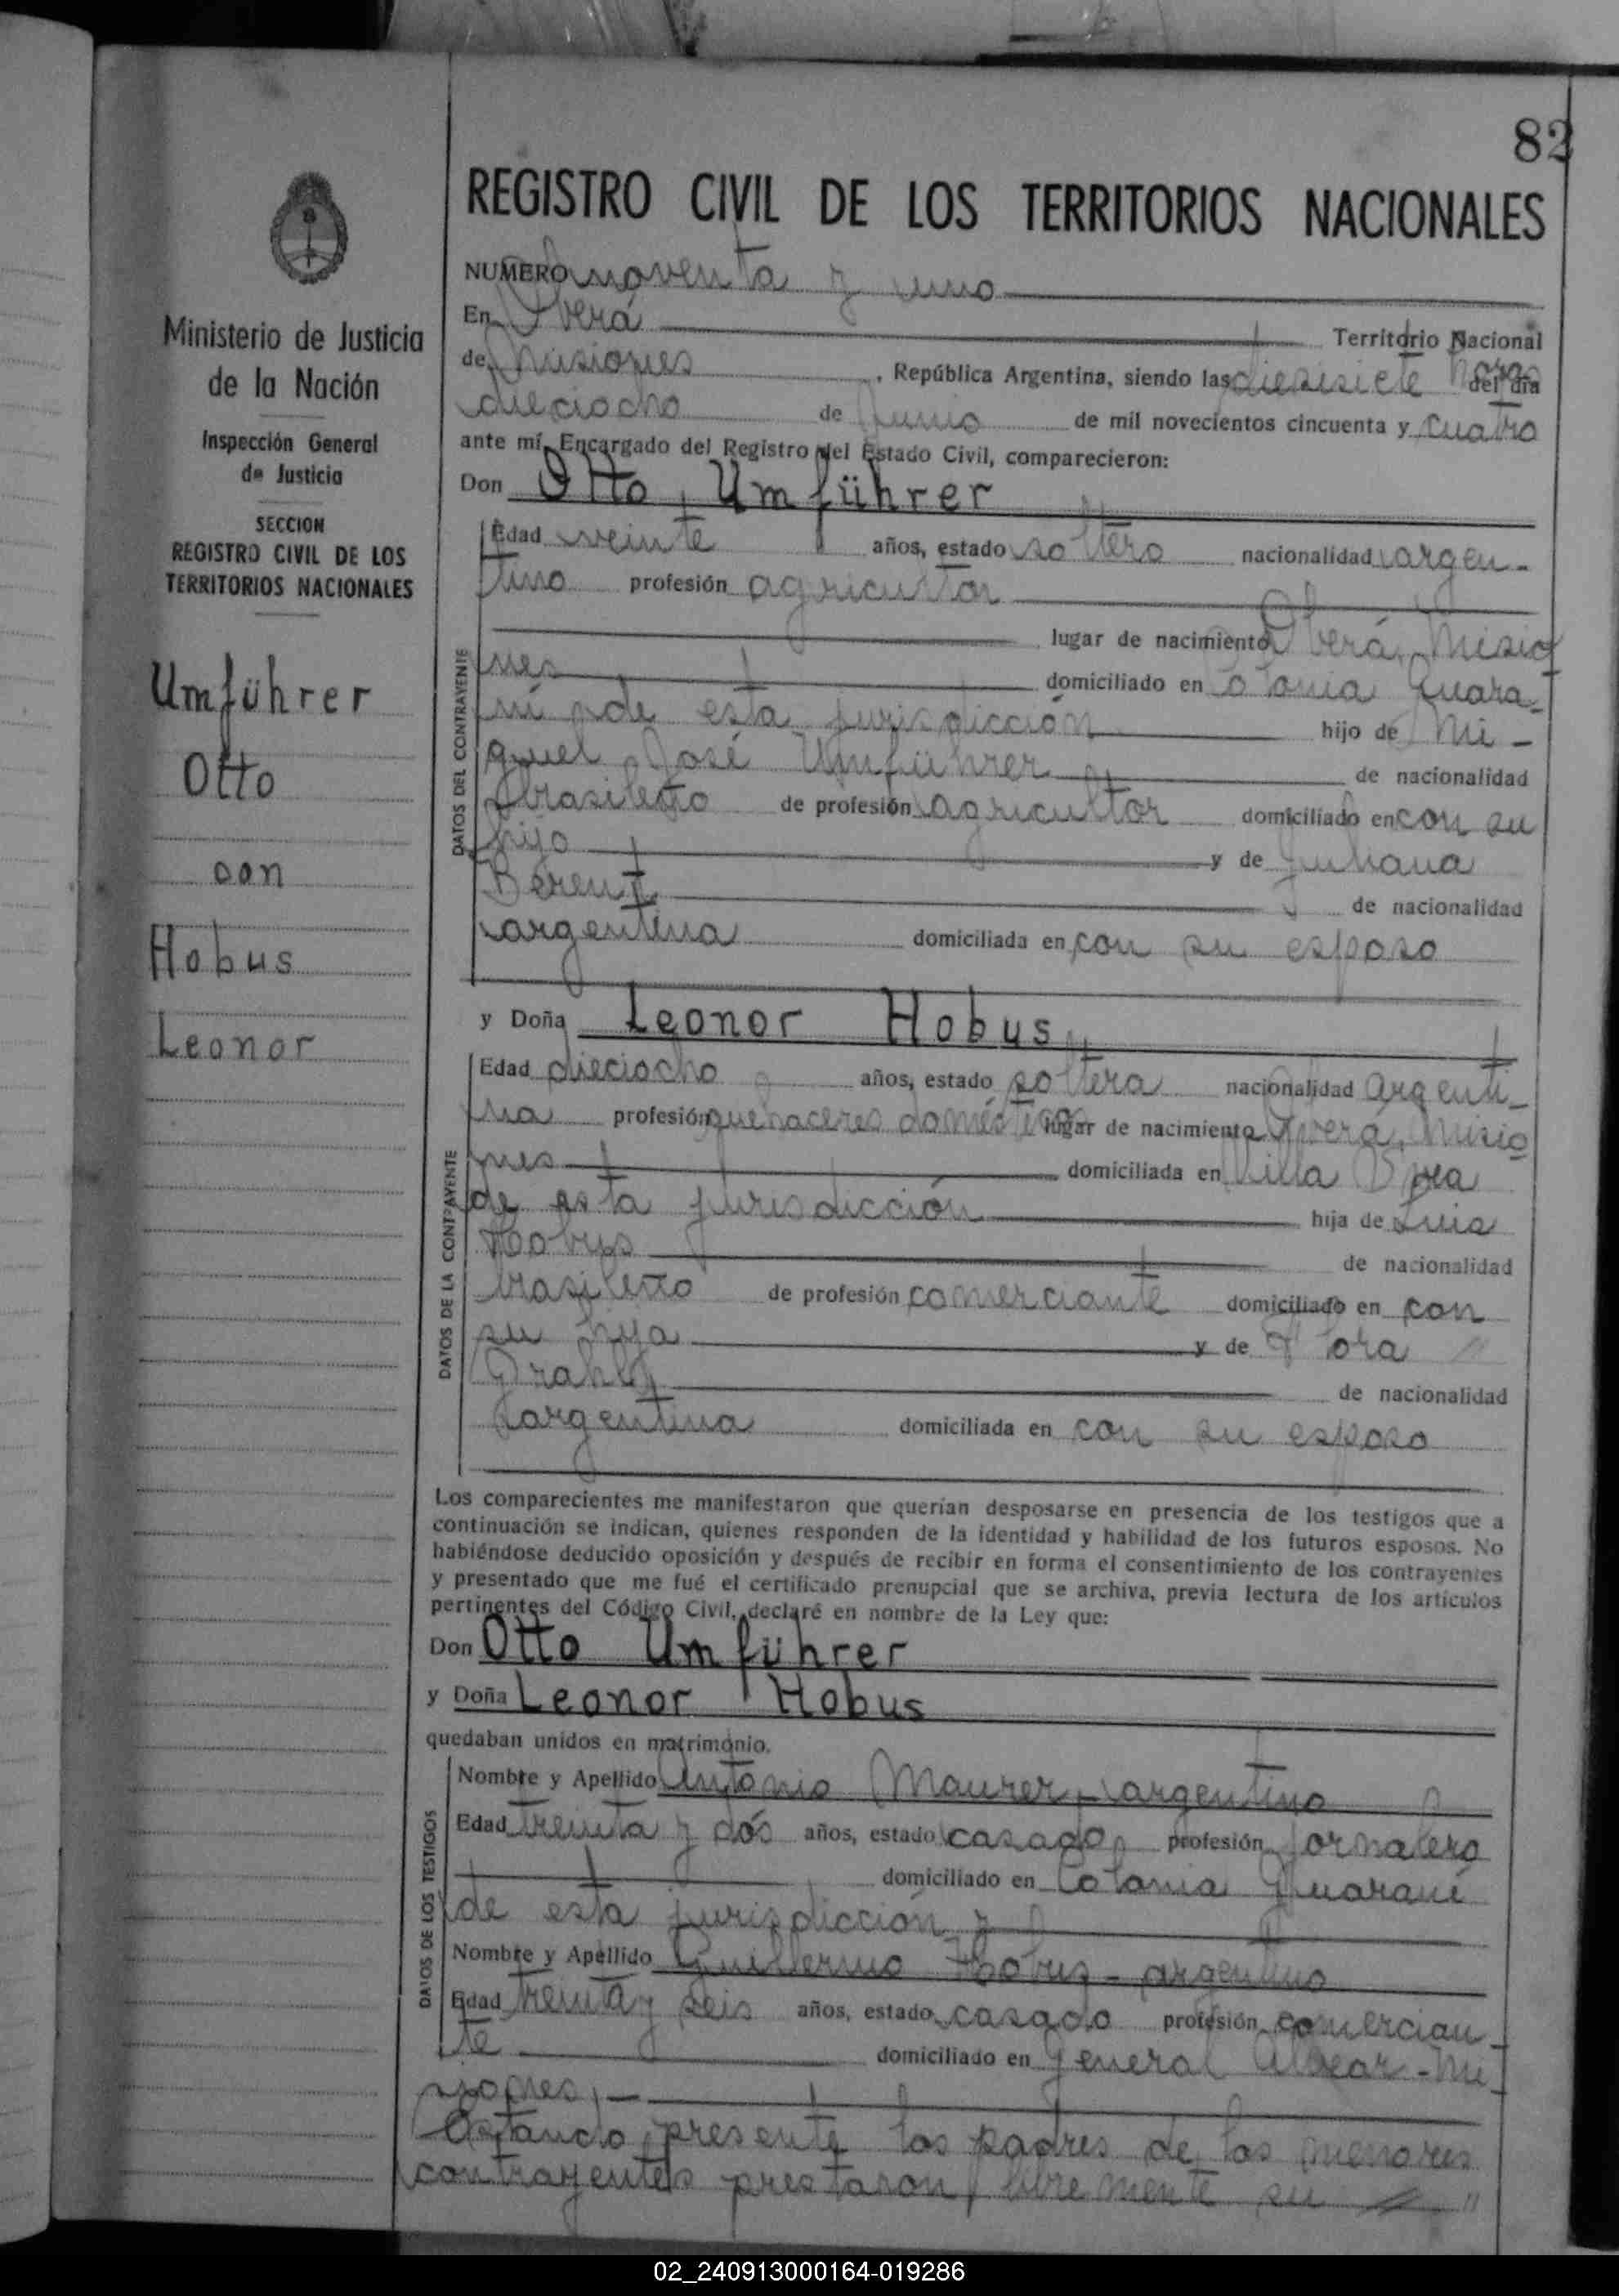 82
REGISTRO CIVIL DE LOS TERRITORIOS NACIONALES
NUMERO noventa y uno
En Oberá Territorio Nacional
de Misiones , República Argentina, siendo las diesisiete horas del día
dieciocho de Junio de mil novecientos cincuenta y cuatro
ante mí, Encargado del Registro del Estado Civil, comparecieron:
Don Otto Umführer
Edad veinte años, estado soltero nacionalidad argen-
tino profesión agricultor
lugar de nacimiento Oberá, Misio
nes domiciliado en Colonia Guara-
ní de esta jurisdicción hijo de Mi-
guel José Umführer de nacionalidad
brasileño de profesión agricultor domiciliado en con su
hijo y de Juliana
Berent de nacionalidad
argentina domiciliada en con su esposo
y Doña Leonor Hobus
Edad dieciocho años, estado soltera nacionalidad argenti-
na profesión quehaceres domésticos lugar de nacimiento Oberá, Misio
nes domiciliada en Villa
de esta jurisdicción hija de Luis
Hobus de nacionalidad
brasileño de profesión comerciante domiciliado en con
su hija y de Flora
de nacionalidad
argentina domiciliada en con su esposo
Los comparecientes me manifestaron que querían desposarse en presencia de los testigos que a
continuación se indican, quienes responden de la identidad y habilidad de los futuros esposos. No
habiéndose deducido oposición y después de recibir en forma el consentimiento de los contrayentes
y presentado que me fué el certificado prenupcial que se archiva, previa lectura de los artículos
pertinentes del Código Civil, declaré en nombre de la Ley que:
Don Otto Umführer
y Doña Leonor Hobus
quedaban unidos en matrimonio.
Nombre y Apellido Antonio Maurer - argentino
Edad treinta y dós años, estado casado profesión jornalero
domiciliado en Colonia Guaraní
de esta jurisdicción y
Nombre y Apellido Guillermo Hobus - argentino
Edad treinta y seis años, estado casado profesión comercian-
te domiciliado en General Alvear - Mi-
siones, -
Estando presente los padres de los menores
contrayentes prestaron libremente su "
DATOS DEL CONTRAYENTE
DATOS DE LA CONTRAYENTE
DATOS DE LOS TESTIGOS
Ministerio de Justicia
de la Nación
Inspección General
de Justicia
SECCION
REGISTRO CIVIL DE LOS
TERRITORIOS NACIONALES
Umführer
Otto
con
Hobus
Leonor
02_240913000164-019286